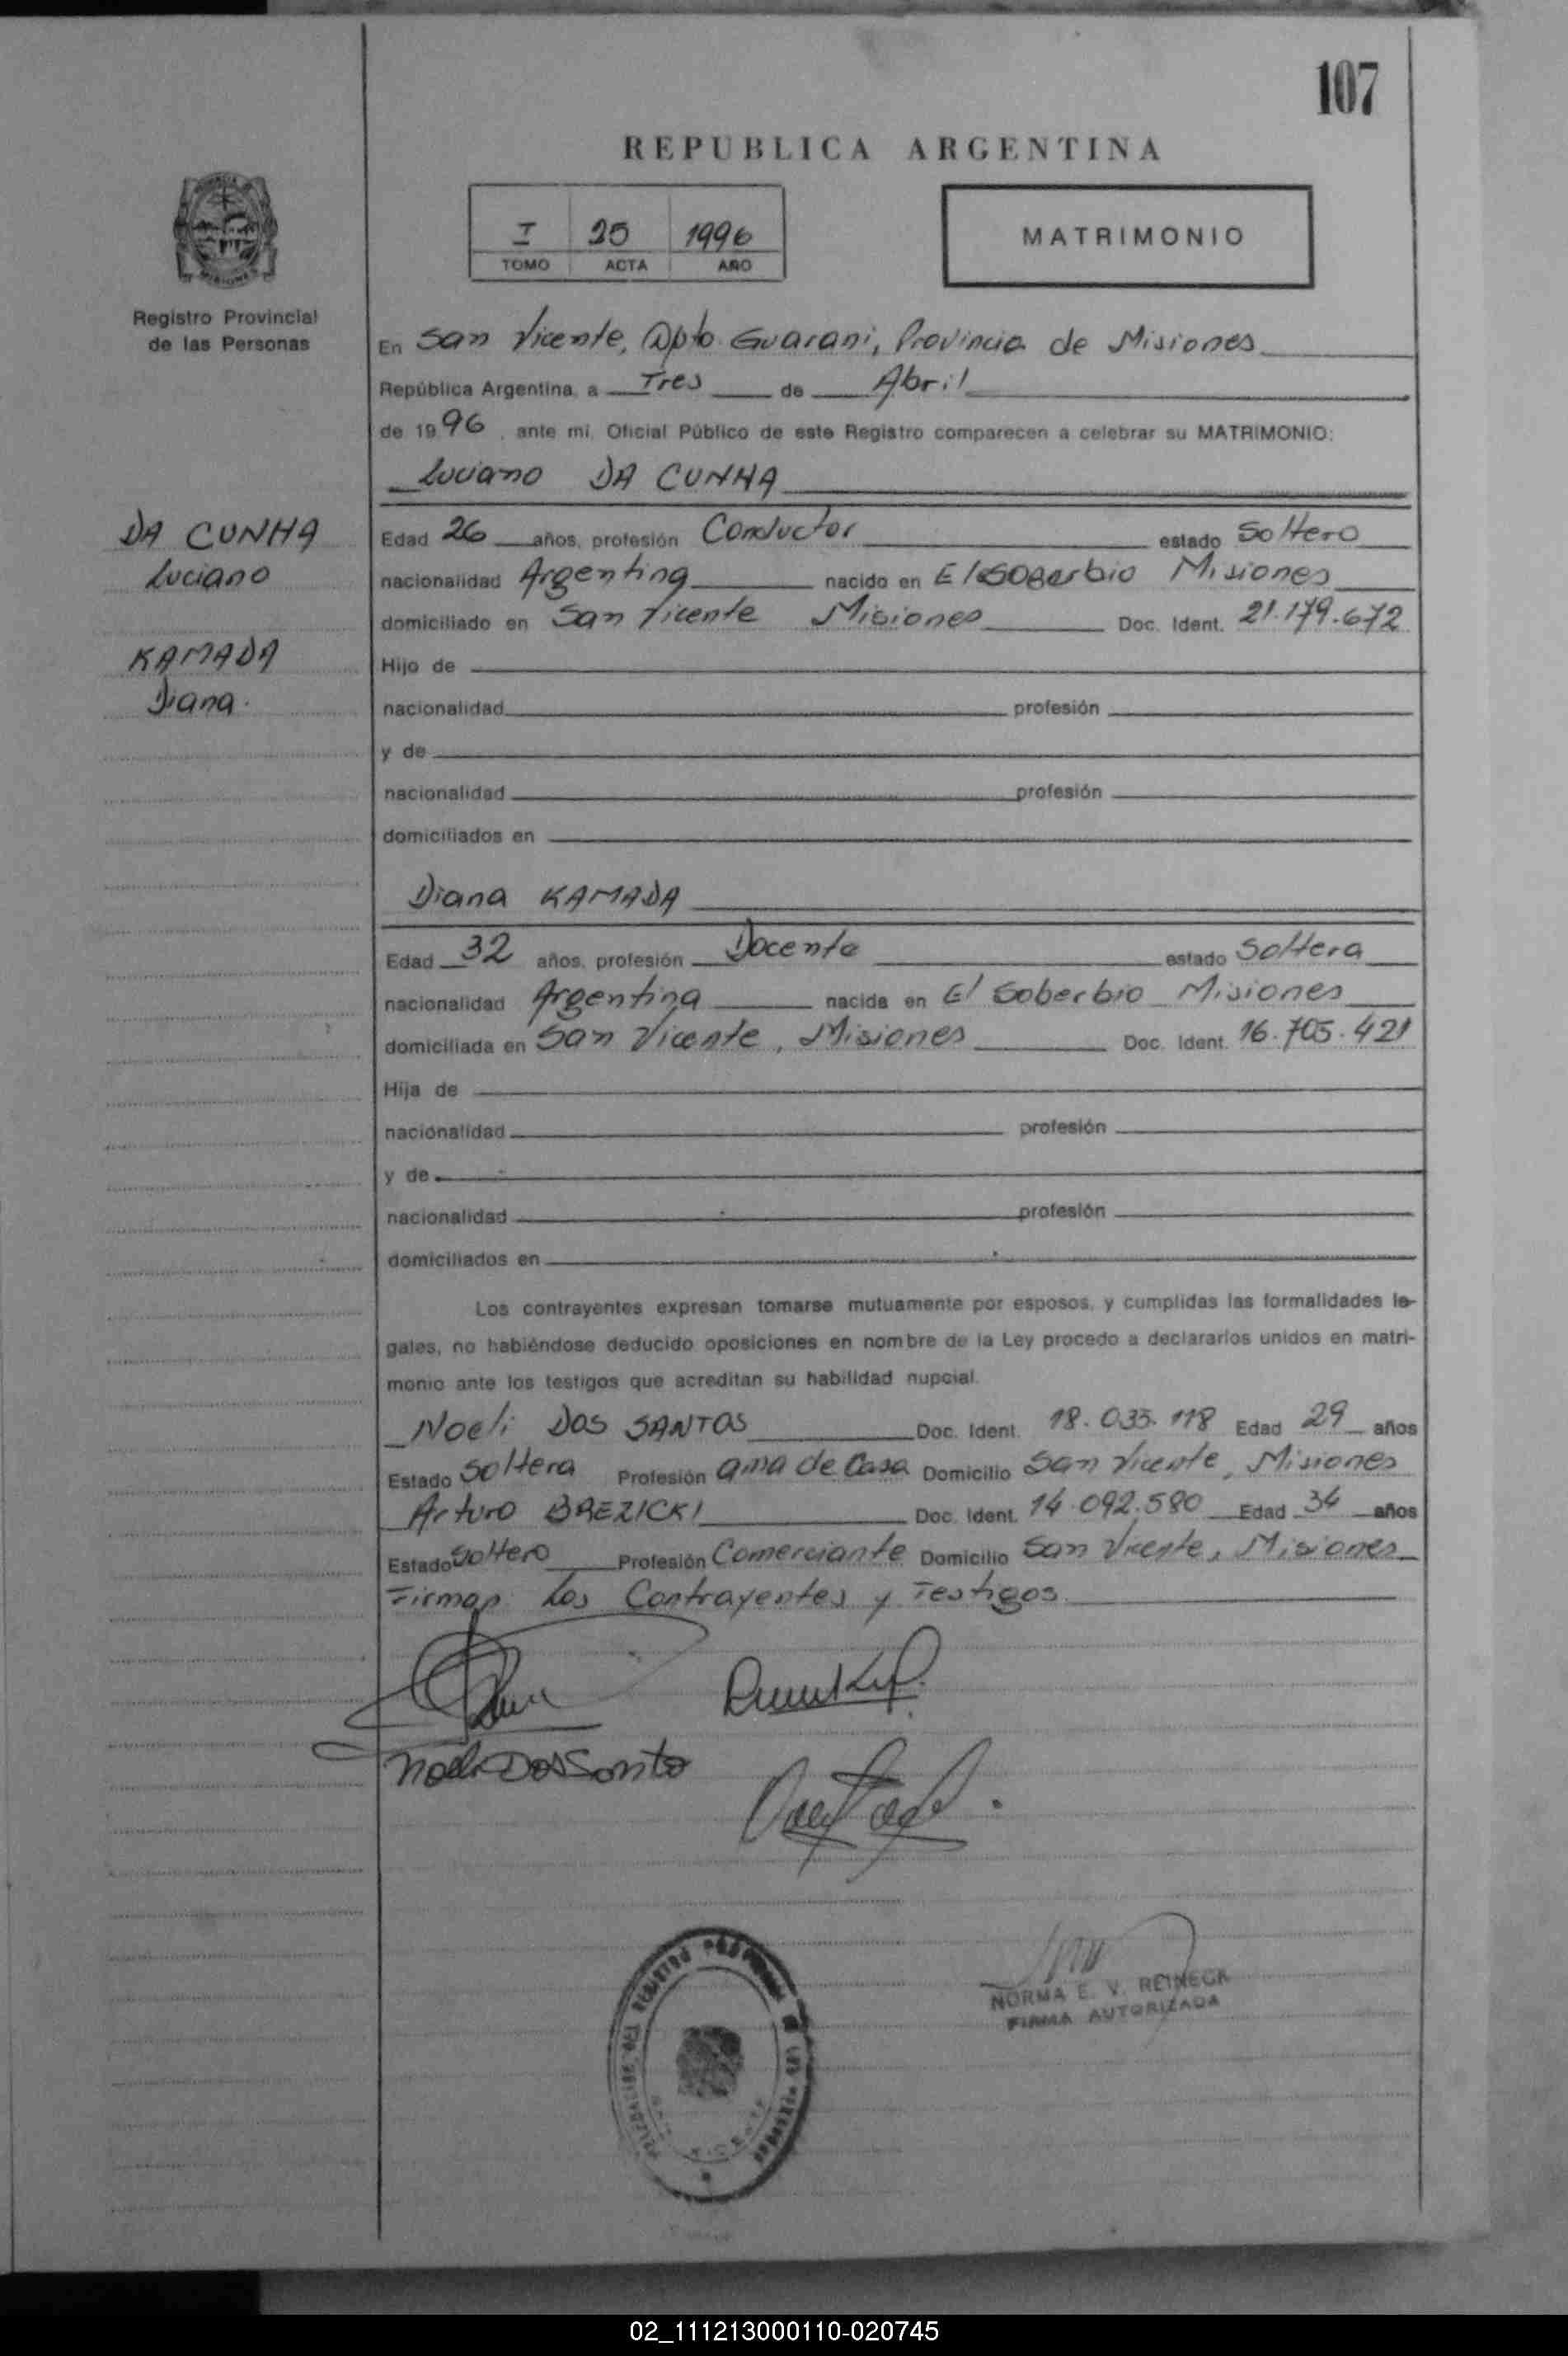 107
REPUBLICA ARGENTINA
I 25 1996
TOMO ACTA AÑO
MATRIMONIO
Registro Provincial
de las Personas
En San Vicente, Dpto Guarani, Provincia de Misiones
República Argentina, a Tres de Abril
de 1996, ante mi, Oficial Público de este Registro comparecen a celebrar su MATRIMONIO:
Luciano DA CUNHA
DA CUNHA
Luciano
KAMADA
Diana.
Edad 26 años, profesión Conductor estado Soltero
nacionalidad Argentina nacido en El Soberbio Misiones
domiciliado en San Vicente Misiones Doc. Ident. 21.179.672
Hijo de
nacionalidad profesión
y de
nacionalidad profesión
domiciliados en
Diana KAMADA
Edad 32 años, profesión Docente estado Soltera
nacionalidad Argentina nacida en El Soberbio Misiones
domiciliada en San Vicente, Misiones Doc. Ident. 16.705.421
Hija de
nacionalidad profesión
y de
nacionalidad profesión
domiciliados en
Los contrayentes expresan tomarse mutuamente por esposos, y cumplidas las formalidades le-
gales, no habiéndose deducido oposiciones en nombre de la Ley procedo a declararlos unidos en matri-
monio ante los testigos que acreditan su habilidad nupcial.
Noeli DOS SANTOS Doc. Ident. 18.035.118 Edad 29 años
Estado Soltera Profesión ama de Casa Domicilio San Vicente, Misiones
Arturo BREZICKI Doc. Ident. 14.092.580 Edad 34 años
Estado Soltero Profesión Comerciante Domicilio San Vicente, Misiones
Firman Los Contrayentes y Testigos.
Noeli Dos Santo
NORMA E. V. REINECK
FIRMA AUTORIZADA
02_111213000110-020745